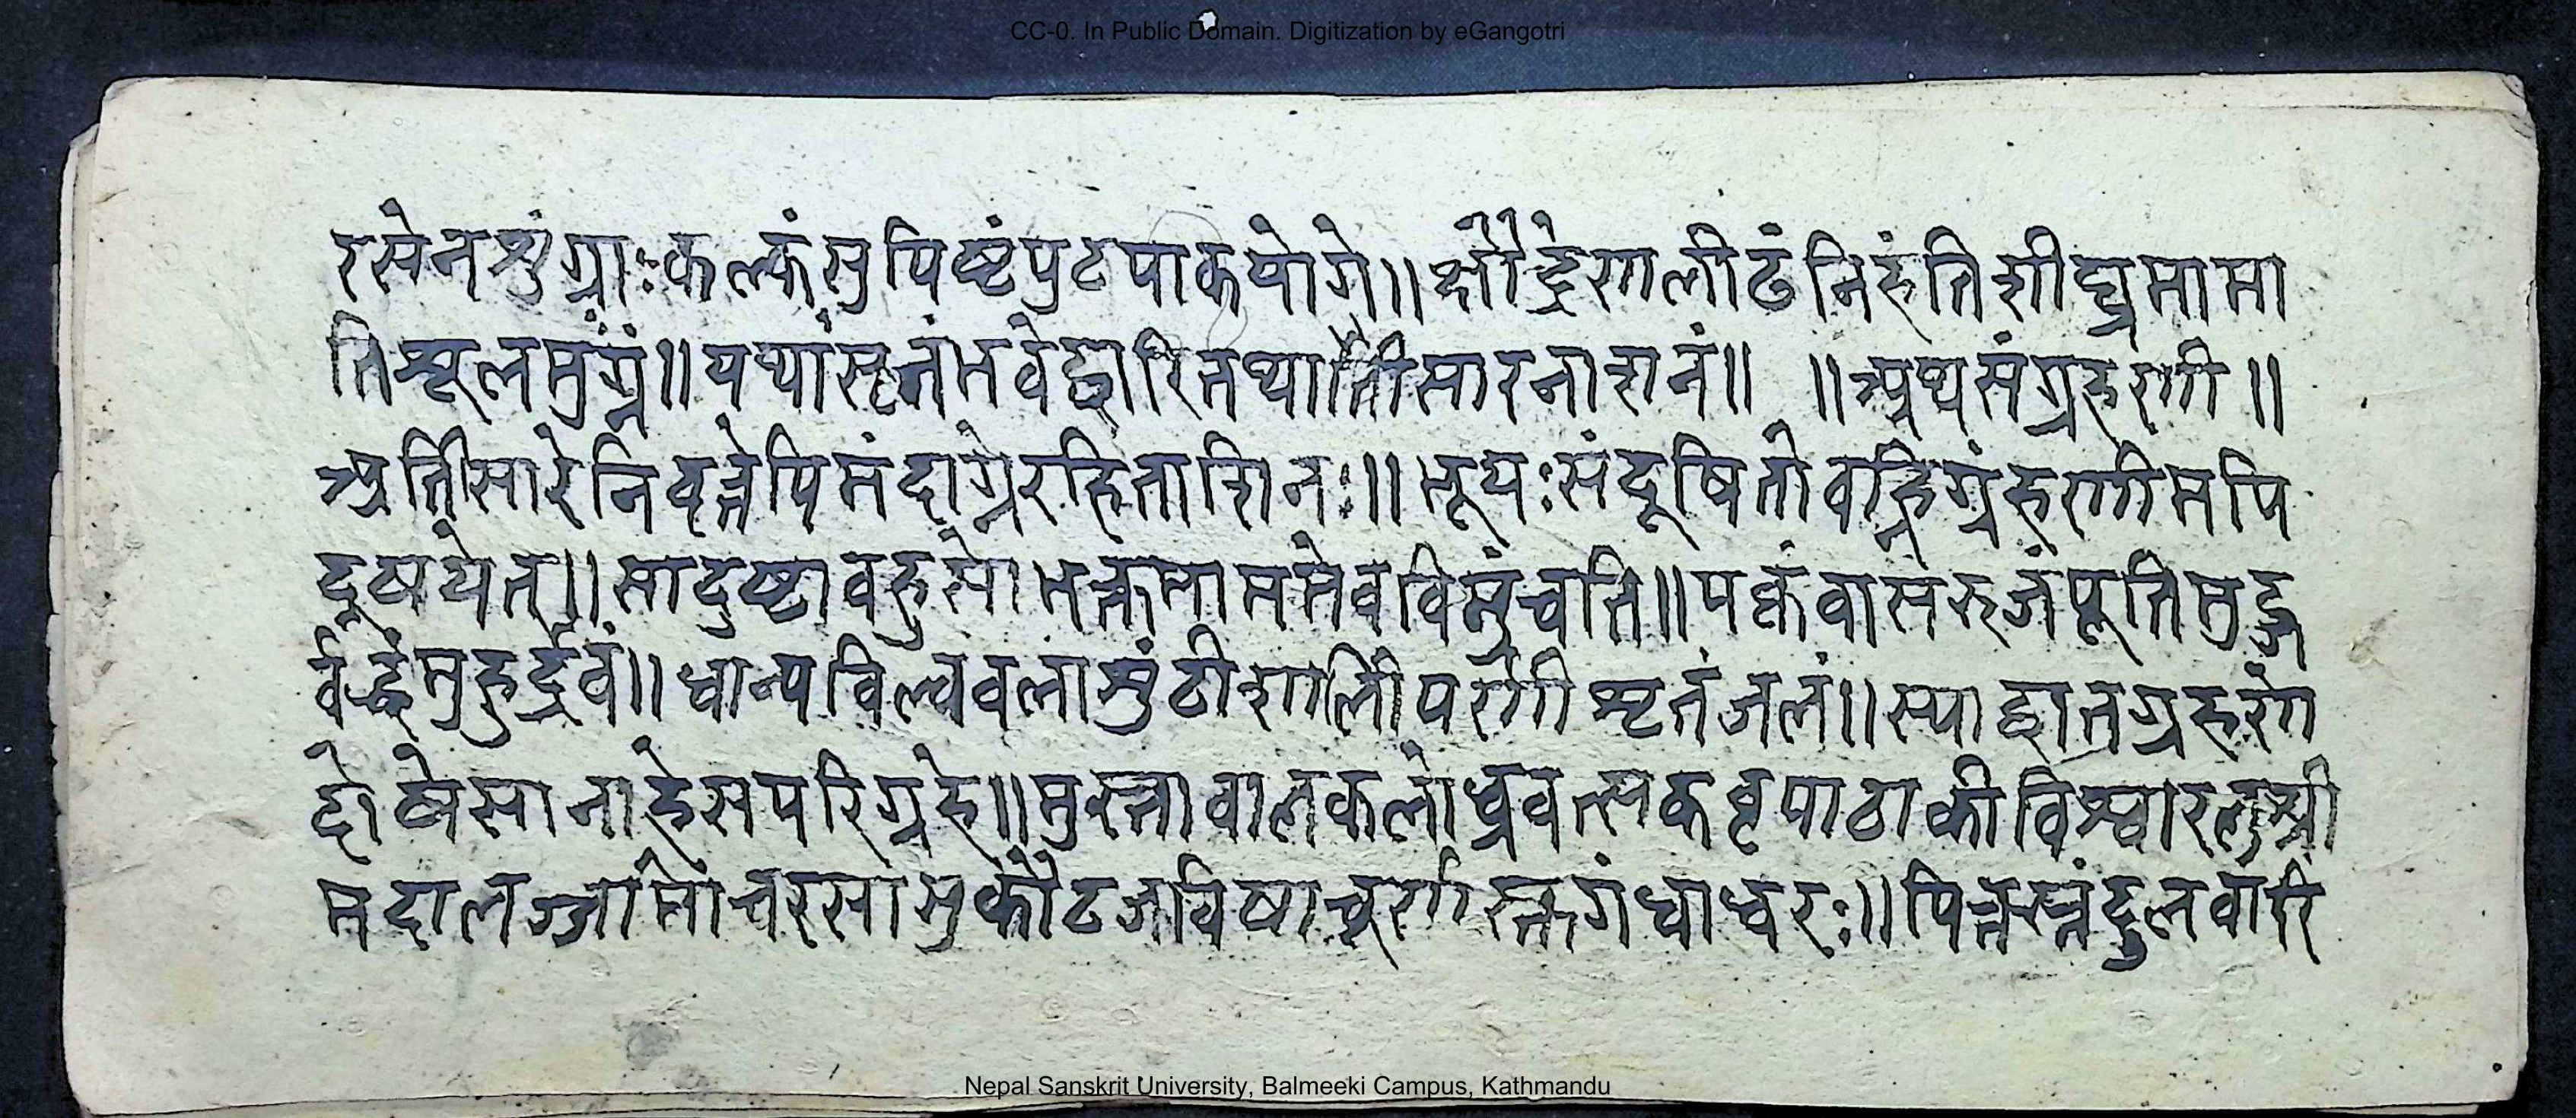 CC-0. In Public Domain. Digitization by eGangotri
रसेनशुंग्राःकल्कंसुपिष्टंपुटपाकयोगे॥क्षौद्रेणलीढंनिहंतिशीघ्रमामा
तिशूलमुग्रं॥यथांसृतंभवेद्वारितथातीसारनाशनं॥ ॥अथसंग्रहणी॥
अतिसारेनिवृत्तेपिमंदाग्नेरहिताशिनः॥भूयःसंदूषितोवह्निर्ग्रहणीमपि
दूषयेत्॥सादुष्टाबहुसोभक्तमाममेवविमुंचति॥पक्वंवासरुजंपूतिमुहु
र्बद्धंमुहुर्द्रवं॥धान्यविल्ववलाशुंठीशालिपर्णीशृतंजलं॥स्याद्वातग्रहणी
दोषेसानाहेसपरिग्रहे॥मुस्तावालकलोध्रवत्सकवृपाठाकीविश्वारलुश्री
मदालज्जामोचरसामुकौटजविषाचूर्णस्तगंधाध्वरः॥पित्तस्तंदुलवारि
Nepal Sanskrit University, Balmeeki Campus, Kathmandu